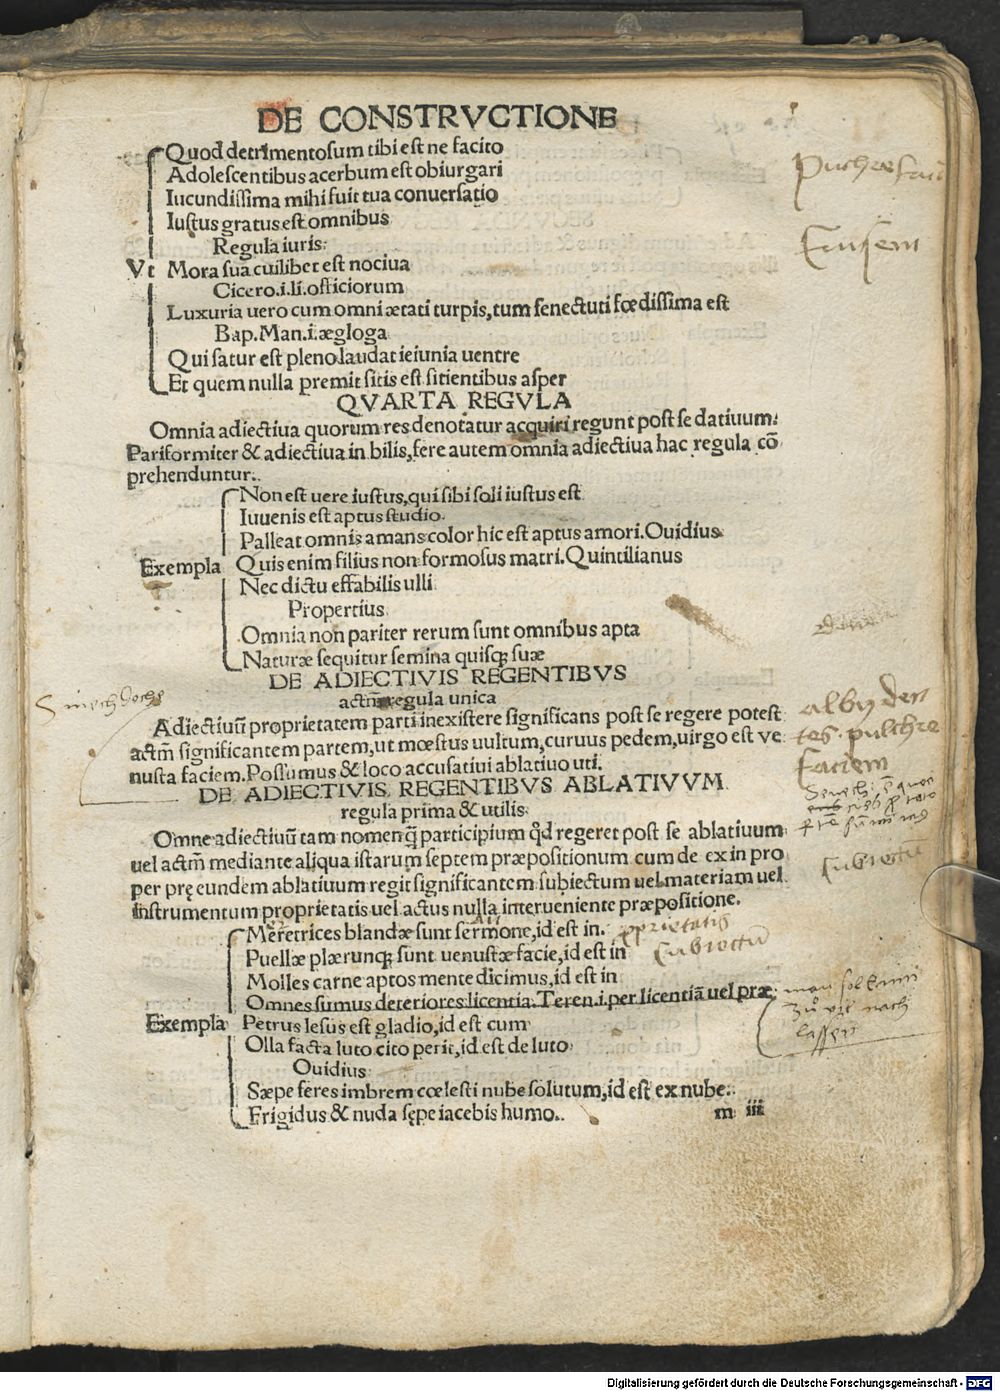 DE CONSTRVCTIONE
Quod detrimentosum tibi est ne facito
Adolescentibus acerbum est obiurgari
Iucundissima mihi fuit tua conuersatio
Iustus gratus est omnibus
Regula iuris:
Vt Mora sua cuilibet est nociua
Cicero.i.li.officiorum
Luxuria uero cum omni ætati turpis, tum senectuti fœdissima est
Bap. Man.i.ægloga
Qui satur est pleno laudat ieiunia uentre
Et quem nulla premit sitis est sitientibus asper
QVARTA REGVLA
Omnia adiectiua quorum res denotatur acquiri regunt post se datiuum.
Pariformiter & adiectiua in bilis, fere autem omnia adiectiua hac regula cō
prehenduntur.
Non est uere iustus, qui sibi soli iustus est
Iuuenis est aptus studio.
Palleat omnis amans color hic est aptus amori. Ouidius
Exempla Quis enim filius non formosus matri. Quintilianus
Nec dictu effabilis ulli
Propertius
Omnia non pariter rerum sunt omnibus apta
Naturæ sequitur semina quisq; suæ
DE ADIECTIVIS REGENTIBVS
actm̄ regula unica
Sinechdoche
Adiectiuū proprietatem parti inexistere significans post se regere potest
actm̄ significantem partem, ut mœstus uultum, curuus pedem, uirgo est ve
nusta faciem. Possumus & loco accusatiui ablatiuo uti.
alby den
tes pulchre
faciem
DE ADIECTIVIS REGENTIBVS ABLATIVVM
regula prima & utilis
Omne adiectiuū tam nomen q̄ participium qd̄ regeret post se ablatiuum
uel actm̄ mediante aliqua istarum septem præpositionum cum de ex in pro
per prę eundem ablatiuum regit significantem subiectum uel materiam uel
instrumentum proprietatis uel actus nulla interueniente præpositione.
subiectū
Meretrices blandæ sunt sermone, id est in. proprietatis
Puellæ plærunq; sunt uenustæ facie, id est in subiectū
Molles carne aptos mente dicimus, id est in
Omnes sumus deteriores licentia. Teren.i.per licentiā uel præ
Exempla Petrus lesus est gladio, id est cum
Olla facta luto cito perit, id est de luto
Ouidius
Sæpe feres imbrem cœlesti nube solutum, id est ex nube.
Frigidus & nuda sępe iacebis humo.
m iii
nach
lassen
Digitalisierung gefördert durch die Deutsche Forschungsgemeinschaft - DFG